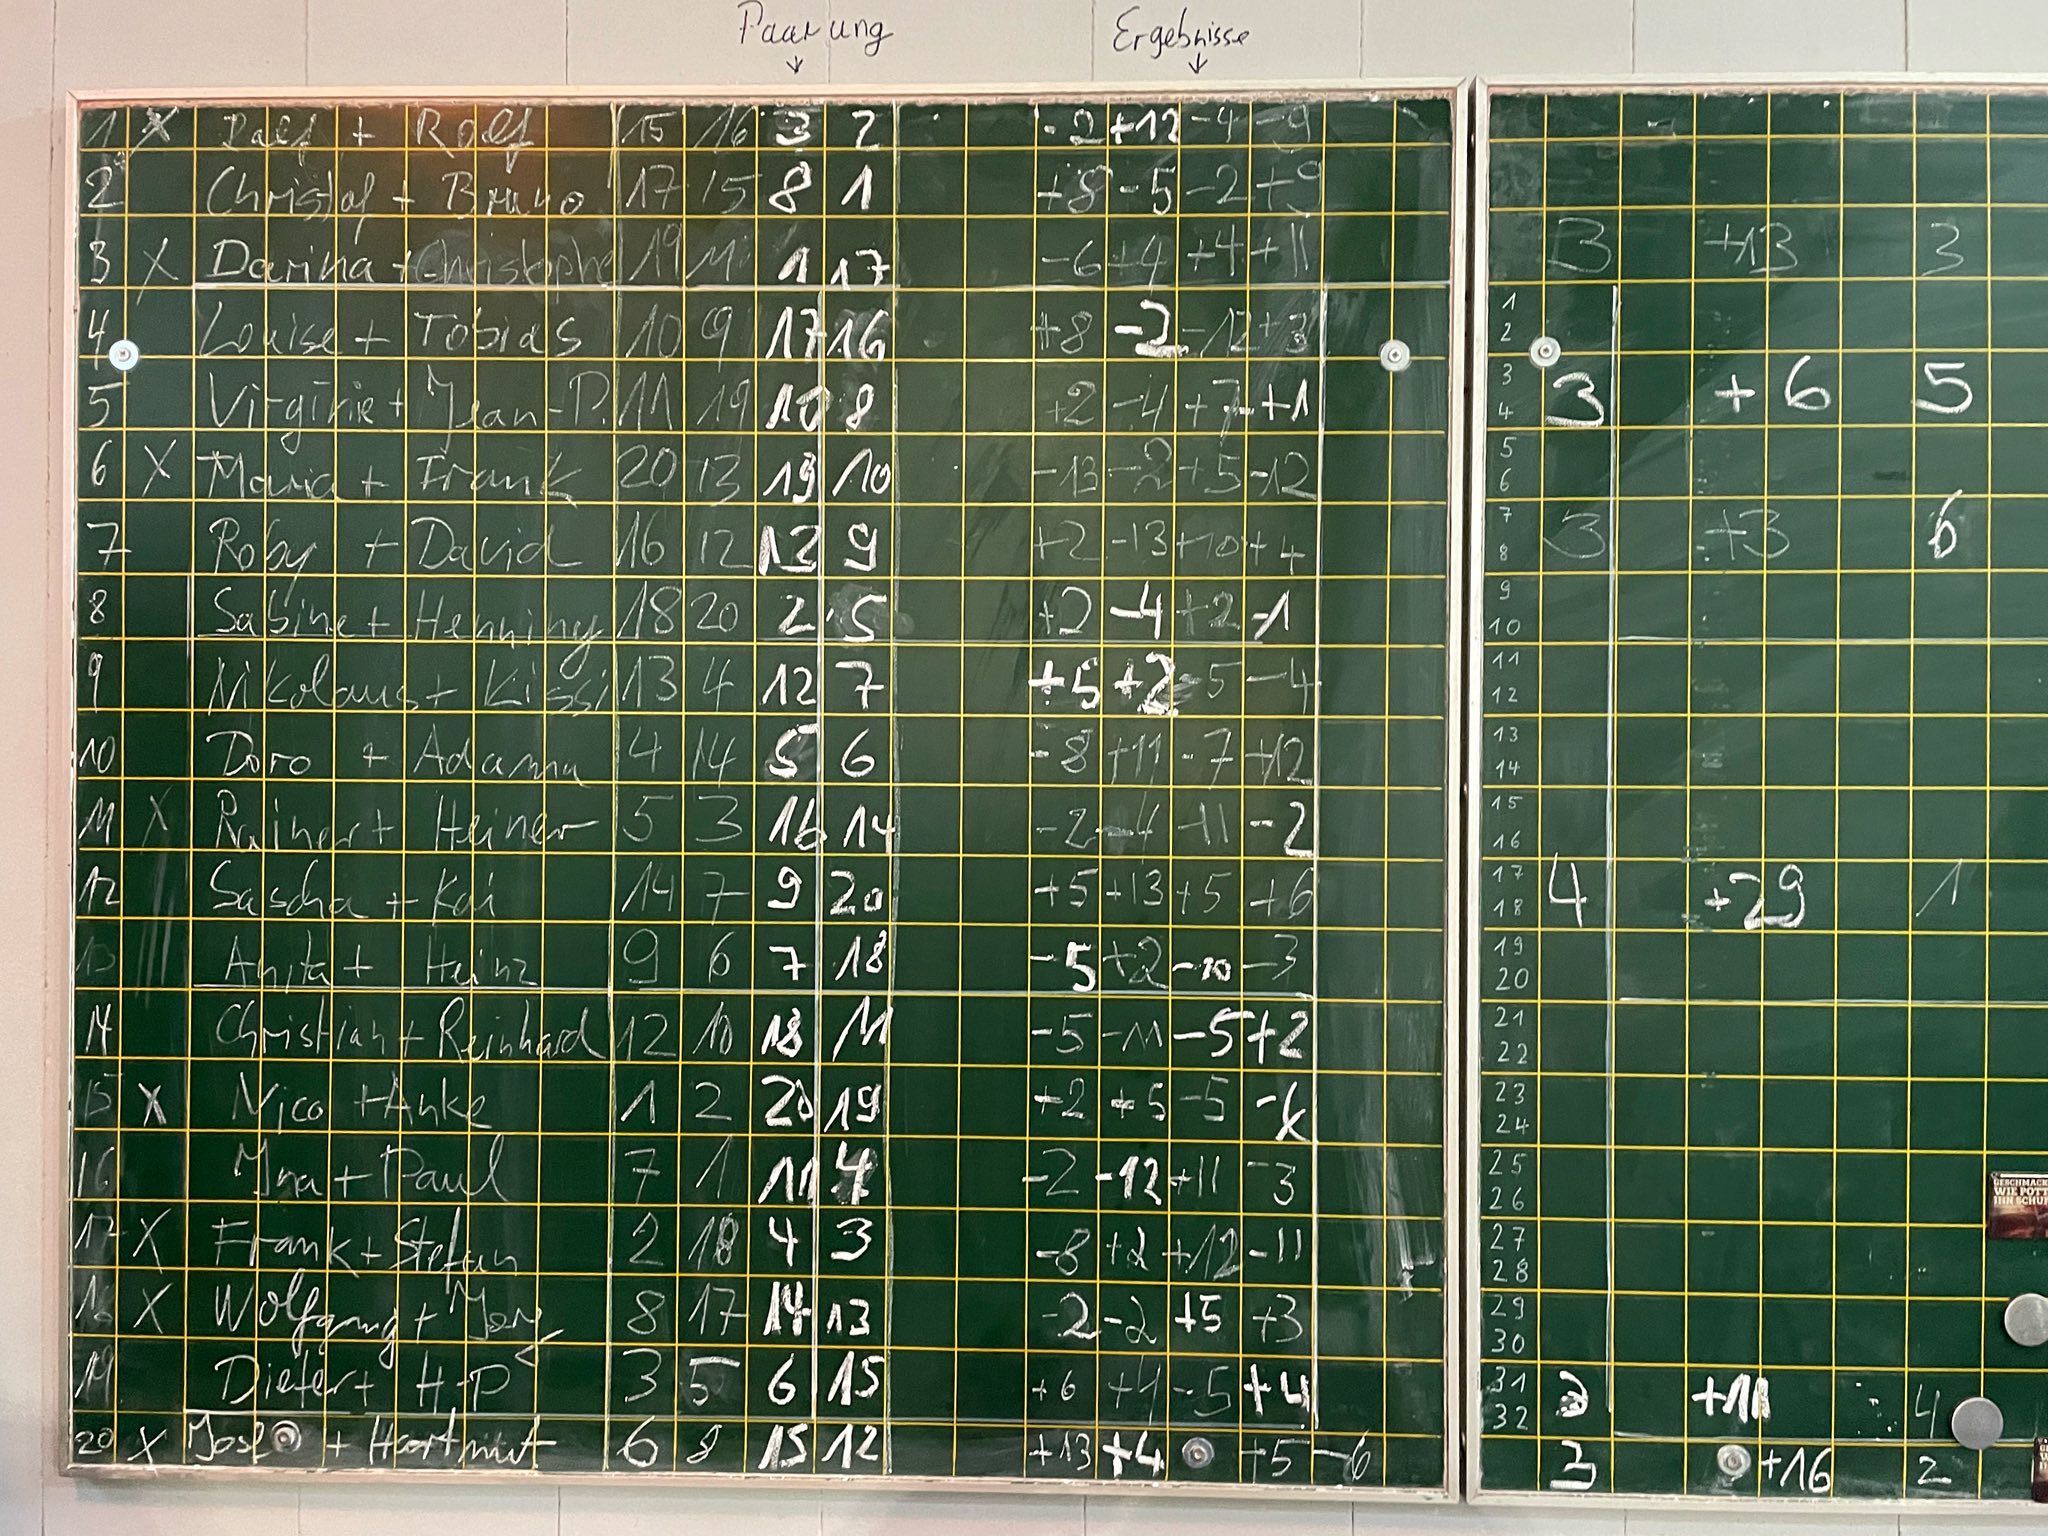 Paarung Ergebnisse
1 X Ralf + Rolf 15 16 3 2 -2 +12 -4 -9
2 Christof + Bruno 17 15 8 1 +8 -5 -2 +9
3 X Darina + Christophe 19 11 1 17 -6 +4 +4 +11 3 +13 3
4 Louise + Tobias 10 9 17 16 +8 -2 -12 +3
5 Virginie + Jean-P. 11 19 10 8 +2 -4 +7 +1 3 +6 5
6 X Maria + Frank 20 13 19 10 -13 -2 +5 -12
7 Roby + David 16 12 13 9 +2 -13 +10 +4 3 +3 6
8 Sabine + Henning 18 20 2 5 +2 -4 +2 -1
9 Nikolaus + Kissi 13 4 12 7 +5 +2 -5 -4
10 Doro + Adama 4 14 5 6 -8 +11 -7 +12
11 X Rainer + Heiner 5 3 16 14 -2 -4 -11 -2
12 Sascha + Kai 14 7 9 20 +5 +13 +5 +6 4 +29 1
13 Anita + Heinz 9 6 7 18 -5 +2 -10 -3
14 Christian + Reinhard 12 10 18 11 -5 -11 -5 +2
15 X Nico + Anke 1 2 20 19 +2 +5 -5
16 Ina + Paul 7 1 11 4 -2 -12 +11 -3
17 X Frank + Stefan 2 18 4 3 -8 +2 +12 -11
18 X Wolfgang + Jörg 8 17 14 13 -2 -2 +5 +3
19 Dieter + H-P 3 5 6 15 +6 +4 -5 +4 3 4
20 X Josef + Hartmut 6 8 15 12 +13 +4 +5 -6 3 +16 2
1
2
3
4
5
6
7
8
9
10
11
12
13
14
15
16
17
18
19
20
21
22
23
24
25
26
27
28
29
30
31
32
GESCHMACK
WIE POTT
IHN SCHUF